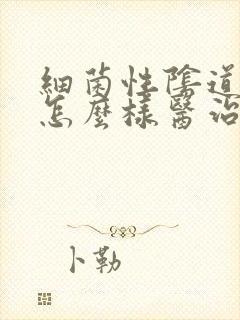 細菌性陰道
怎麼樣醫治
卜勒